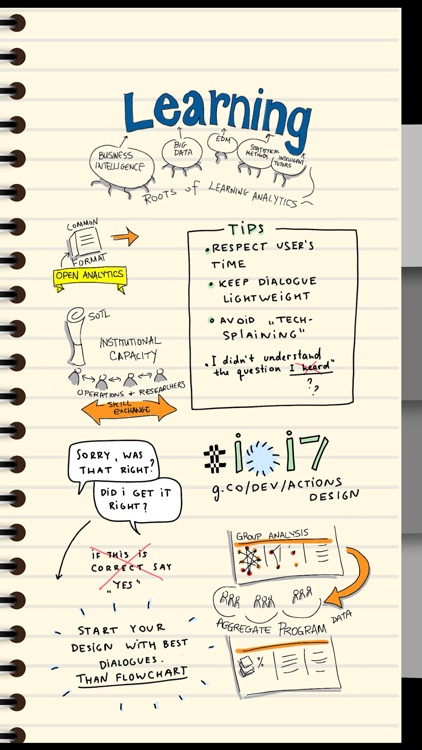 Learning
BUSINESS
INTELLIGENCE
BIG
DATA
EDM
STATISTICAL
METHODS
INTELLIGENT
TUTORS
ROOTS of LEARNING ANALYTICS
COMMON
FORMAT
OPEN ANALYTICS
SOTL
INSTITUTIONAL
CAPACITY
OPERATIONS & RESEARCHERS
SKILL
EXCHANGE
TiPS
RESPECT USER'S
TIME
KEEP DIALOGUE
LIGHTWEIGHT
AVOID "TECH-
SPLAINING"
"I didn't understand
the question I heard"
? ?
SORRY, WAS
THAT RIGHT?
DID i GET iT
RIGHT?
IF THIS IS
CORRECT SAY
"YES"
START YOUR
DESIGN WITH BEST
DIALOGUES.
THAN FLOWCHART
#io17
g.co/DEV/ACTIONS
DESIGN
GROUP ANALYSIS
DATA
AGGREGATE PROGRAM
%